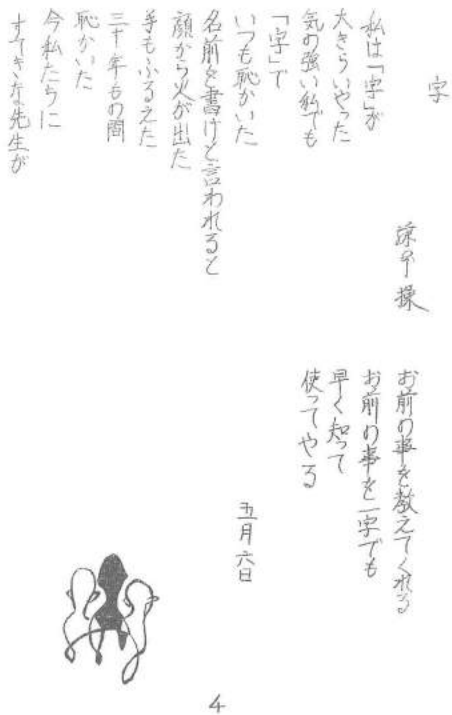 字
操
私は「字」が
大きらいやった
気の強い私でも
「字」で
いつも恥かいた
名前を書けと言われると
顔から火が出た
手もふるえた
三十年もの間
恥かいた
今私たちに
すてきな先生が
お前の事を教えてくれる
お前の事を一字でも
早く知って
使ってやる
五月六日
4